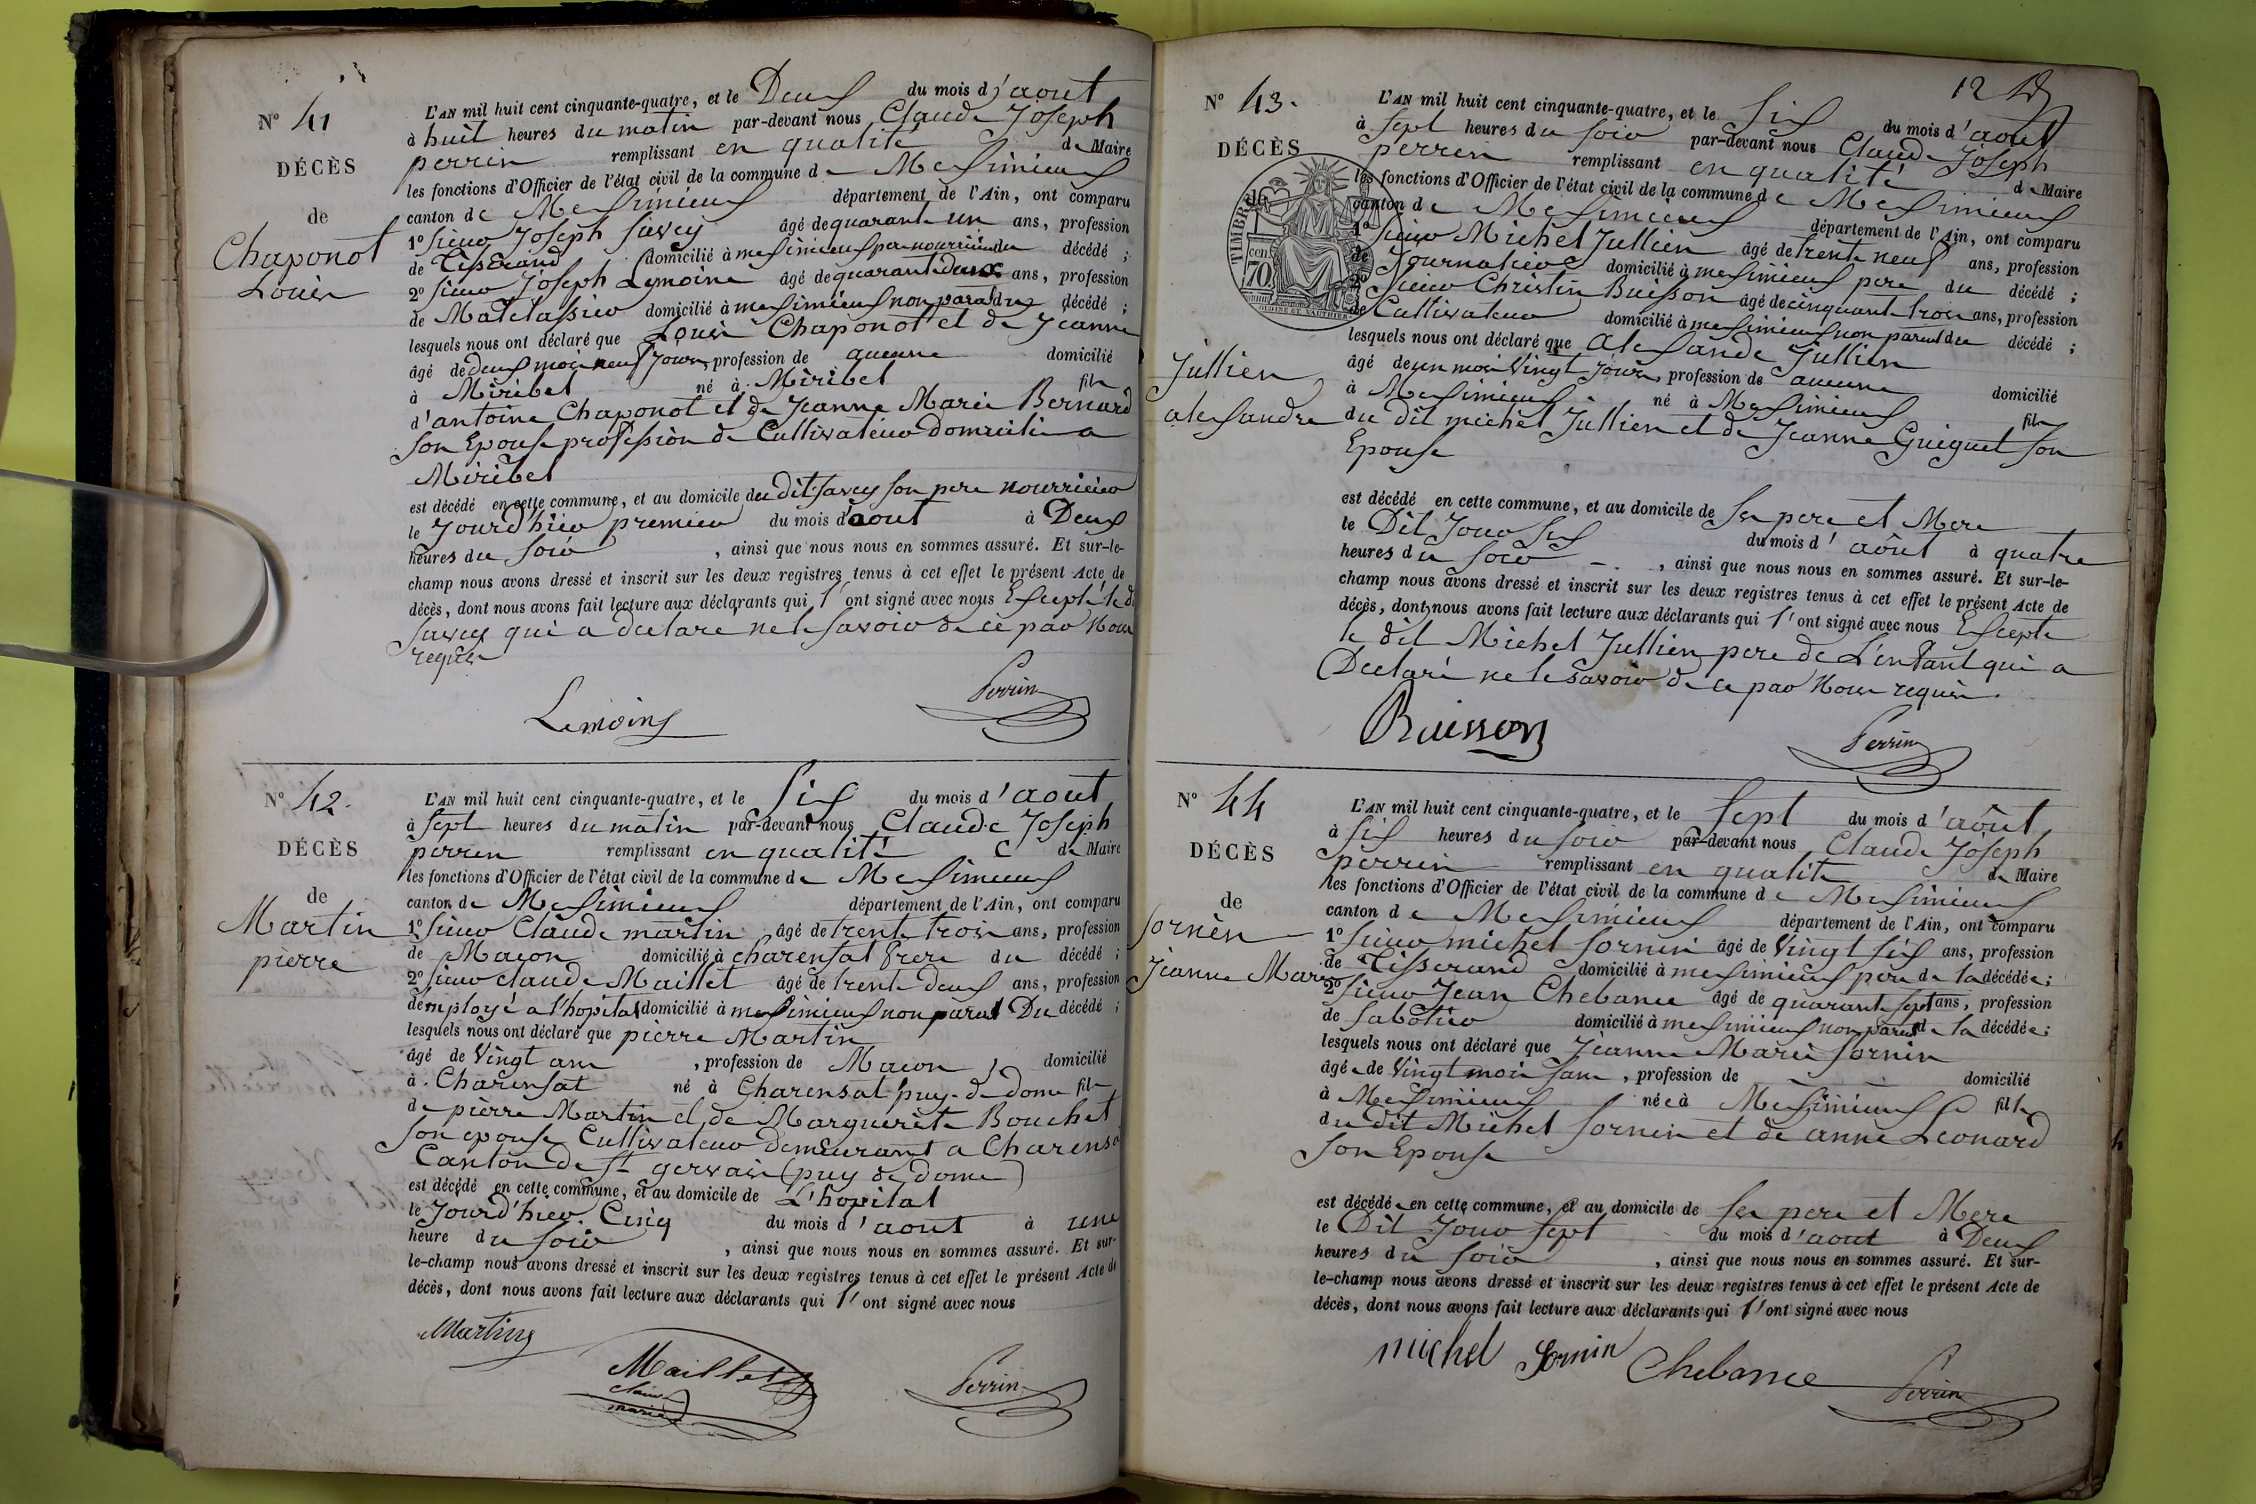 N° 41
DÉCÈS
de
Chaponot
Louis
L'AN mil huit cent cinquante-quatre, et le Deux du mois d'aout
à huit heures du matin par-devant nous Claude Joseph
perrin remplissant en qualité de Maire
les fonctions d'Officier de l'état civil de la commune de Meximieux
canton de Meximieux département de l'Ain, ont comparu
1° Sieur Joseph Savey âgé de quarante un ans, profession
de Tisserand domicilié à meximieux pere nourricier du décédé ;
2° Sieur Joseph Lemoine âgé de quarante deux ans, profession
de Matelassier domicilié à meximieux non parent du décédé ;
lesquels nous ont déclaré que Louis Chaponot et de Jeanne
âgé de deux mois neuf jours, profession de aucune domicilié
à Miribel né à Miribel fils
d'antoine Chaponot et de Jeanne Marie Bernard
Son Epouse profession de Cultivateur domicilié a
Miribel
est décédé en cette commune, et au domicile du dit Savey son pere nourricier
le Jourd'hier premier du mois d'aout à Deux
heures du soir , ainsi que nous nous en sommes assuré. Et sur-le-
champ nous avons dressé et inscrit sur les deux registres tenus à cet effet le présent Acte de
décès, dont nous avons fait lecture aux déclarants qui l'ont signé avec nous Excepté le d
Savey qui a declaré ne le savoir de ce par Nous
requis
Lemoine Perrin
N° 42.
DÉCÈS
de
Martin
pierre
L'AN mil huit cent cinquante-quatre, et le Six du mois d'aout
à Sept heures du matin par-devant nous Claude Joseph
perrin remplissant en qualité de Maire
les fonctions d'Officier de l'état civil de la commune de Meximieux
canton de Meximieux département de l'Ain, ont comparu
1° Sieur Claude martin âgé de trente trois ans, profession
de Maçon domicilié à charensat frere du décédé ;
2° Sieur claude Maillet âgé de trente deux ans, profession
demployé a l'hopital domicilié à meximieux non parent Du décédé ;
lesquels nous ont déclaré que pierre Martin
âgé de Vingt ans , profession de Macon domicilié
à Charensat né à Charensat puy-de-dome fils
de pierre Martin et de Marguerite Bouchet
son epouse Cultivateur Demeurant a Charensa
Canton de St gervais (puy de dome)
est décédé en cette commune, et au domicile de L'hopital
le Jourd'hier Cinq du mois d'aout à une
heure du soir , ainsi que nous nous en sommes assuré. Et sur-
le-champ nous avons dressé et inscrit sur les deux registres tenus à cet effet le présent Acte de
décès, dont nous avons fait lecture aux déclarants qui l'ont signé avec nous
Martin Maillet Perrin
marie
12
N° 43.
DÉCÈS
de
TIMBRE
70
Jullien
alexandre
L'AN mil huit cent cinquante-quatre, et le Six du mois d'aout
à Sept heures du soir par-devant nous Claude Joseph
perrin remplissant en qualité de Maire
les fonctions d'Officier de l'état civil de la commune de Meximieux
canton de Meximieux département de l'Ain, ont comparu
1° Sieur Michel Jullien âgé de trente neuf ans, profession
de Journalier domicilié à meximieux pere du décédé ;
2° Sieur Christin Buisson âgé de cinquante trois ans, profession
de Cultivateur domicilié à meximieux non parent du décédé ;
lesquels nous ont déclaré que alexandre Jullien
âgé de un mois Vingt jours, profession de aucune domicilié
à Meximieux né à Meximieux fils
du dit michel Jullien et de Jeanne Guiguet son
Epouse
est décédé en cette commune, et au domicile de Ses pere et Mere
le Dit Jour Six du mois d'août à quatre
heures du soir , ainsi que nous nous en sommes assuré. Et sur-le-
champ nous avons dressé et inscrit sur les deux registres tenus à cet effet le présent Acte de
décès, dont nous avons fait lecture aux déclarants qui l'ont signé avec nous Excepté
le dit Michel Jullien pere de L'enfant qui a
Declaré ne le savoir de ce par Nous requis.
Buisson Perrin
N° 44
DÉCÈS
de
Sornin
Jeanne Marie
L'AN mil huit cent cinquante-quatre, et le Sept du mois d'août
à Six heures du soir par-devant nous Claude Joseph
perrin remplissant en qualité de Maire
les fonctions d'Officier de l'état civil de la commune de Meximieux
canton de Meximieux département de l'Ain, ont comparu
1° Sieur michel Sornin âgé de Vingt six ans, profession
de Tisserand domicilié à meximieux père de la décédée ;
2° Sieur Jean Chebance âgé de quarante sept ans, profession
de Sabotier domicilié à meximieux non parent de la décédée ;
lesquels nous ont déclaré que Jeanne Marie Sornin
âgée de Vingt mois , profession de domicilié
à Meximieux née à Meximieux fille
du dit Michel Sornin et de anne Leonard
Son Epouse
est décédée en cette commune, et au domicile de Ses pere et Mere
le Dit Jour Sept du mois d'aout à Deux
heures du soir , ainsi que nous nous en sommes assuré. Et sur-
le-champ nous avons dressé et inscrit sur les deux registres tenus à cet effet le présent Acte de
décès, dont nous avons fait lecture aux déclarants qui l'ont signé avec nous
michel Sornin Chebance Perrin